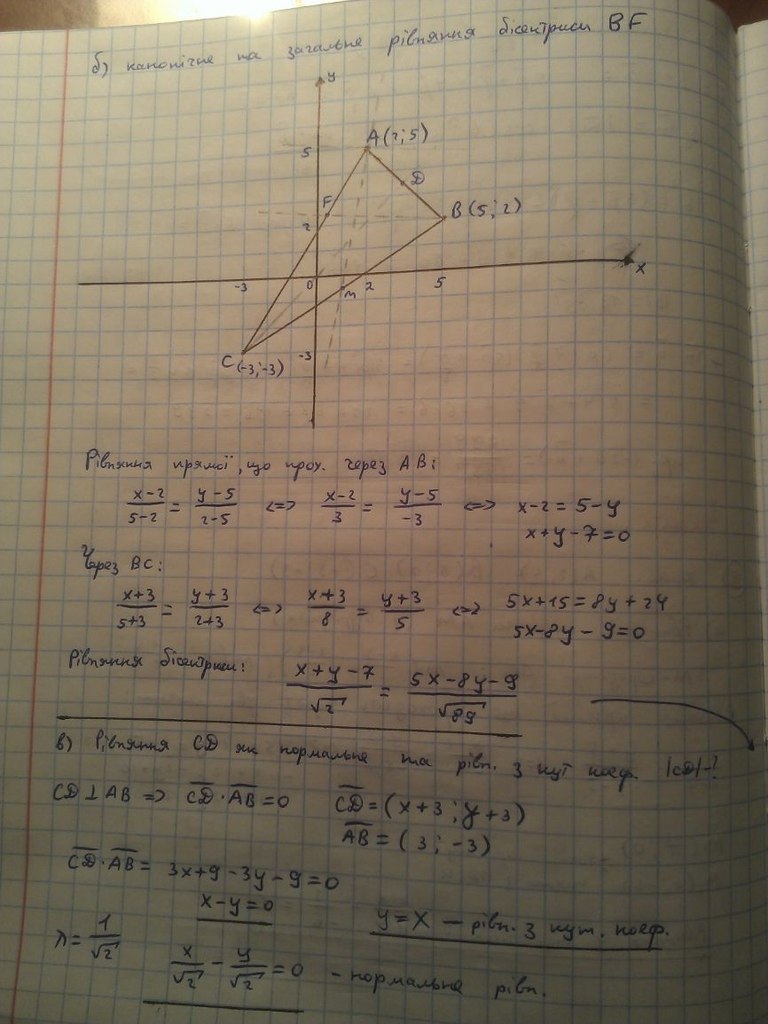 б) канонічне та загальне рівняння бісектриси BF
y
A(2;5)
5
D
F
B(5;2)
2
-3 0 M 2 5 x
C(-3;-3) -3
Рівняння прямої, що прох. через AB:
(x-2)/(5-2) = (y-5)/(2-5) <=> (x-2)/3 = (y-5)/(-3) <=> x-2 = 5-y
x+y-7=0
Через BC:
(x+3)/(5+3) = (y+3)/(2+3) <=> (x+3)/8 = (y+3)/5 <=> 5x+15 = 8y+24
5x-8y-9=0
Рівняння бісектриси: (x+y-7)/√2 = (5x-8y-9)/√89
в) Рівняння CD як нормальне та рівн. з кут коеф. |CD|-?
CD⊥AB => CD·AB=0 CD=(x+3;y+3)
AB=(3;-3)
CD·AB= 3x+9-3y-9=0
x-y=0
y=x — рівн. з кут. коеф.
λ=1/√2
x/√2 - y/√2 = 0 - нормальне рівн.